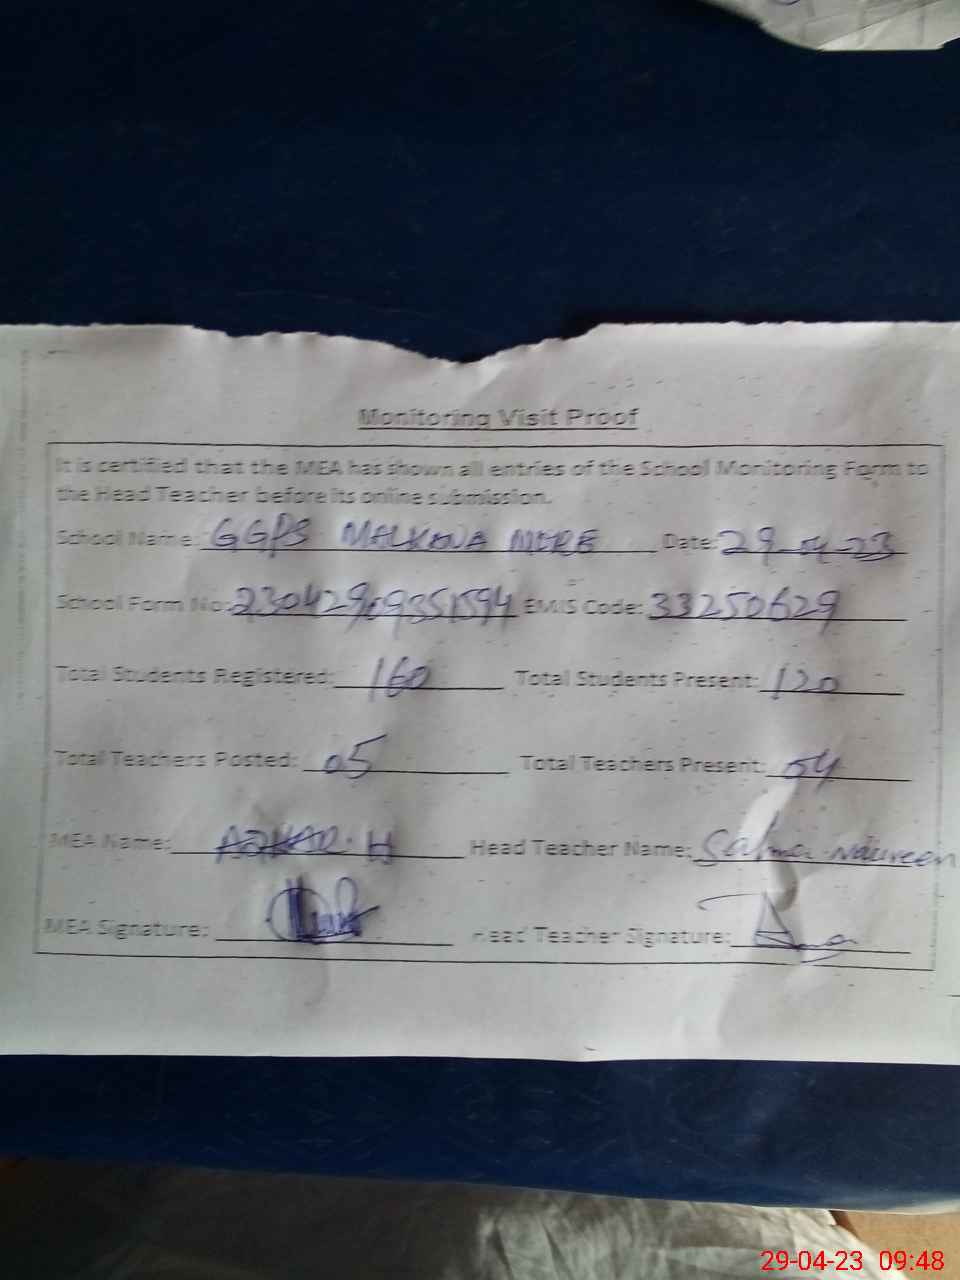 Monitoring Visit Proof
It is certified that the MEA has shown all entries of the School Monitoring Form to
the Head Teacher before its online submission.
School Name: GGPS MALKANA MORE Date: 29-04-23
School Form No: 23042909351594 EMIS Code: 33250629
Total Students Registered: 160 Total Students Present: 120
Total Teachers Posted: 05 Total Teachers Present: 04
MEA Name: H Head Teacher Name: Salma Naureen
MEA Signature: Head Teacher Signature:
29-04-23 09:48